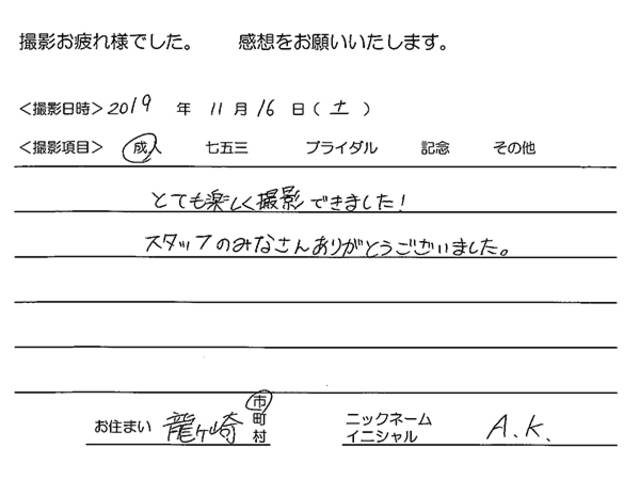 撮影お疲れ様でした。 感想をお願いいたします。
＜撮影日時＞2019 年 11 月 16 日 ( 土 )
＜撮影項目＞ 成人 七五三 ブライダル 記念 その他
とても楽しく撮影できました!
スタッフのみなさんありがとうございました。
お住まい 龍ヶ崎 市 町 村
ニックネーム イニシャル A.K.